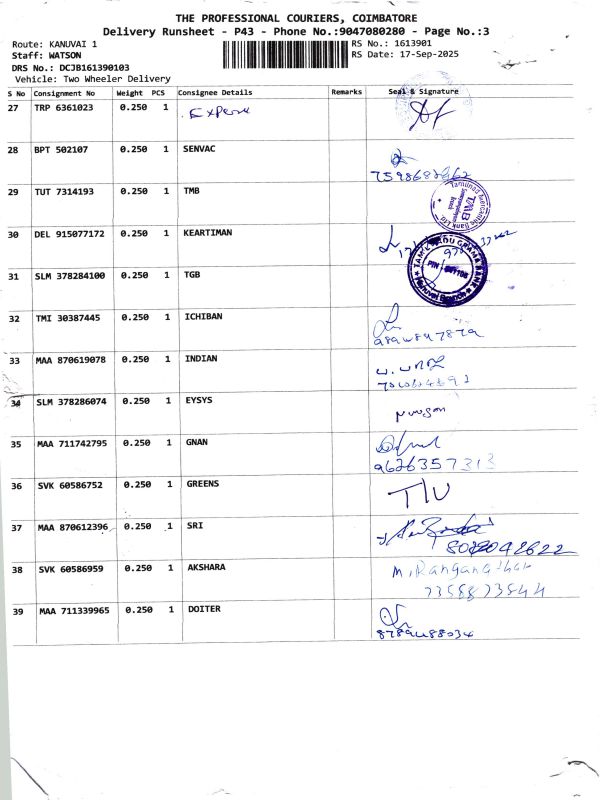 THE PROFESSIONAL COURIERS, COIMBATORE
Delivery Runsheet - P43 - Phone No.:9047080280 - Page No.:3
Route: KANUVAI 1
RS No.: 1613901
Staff: WATSON
RS Date: 17-Sep-2025
DRS No.: DCJB161390103
Vehicle: Two Wheeler Delivery
S No Consignment No Weight PCS Consignee Details Remarks Seal & Signature
27 TRP 6361023 0.250 1 Expert
28 BPT 502107 0.250 1 SENVAC
29 TUT 7314193 0.250 1 TMB
30 DEL 915077172 0.250 1 KEARTIMAN
31 SLM 378284100 0.250 1 TGB
32 TMI 30387445 0.250 1 ICHIBAN
33 MAA 870619078 0.250 1 INDIAN
34 SLM 378286074 0.250 1 EYSYS
35 MAA 711742795 0.250 1 GNAN
9626357313
36 SVK 60586752 0.250 1 GREENS
37 MAA 870612396 0.250 1 SRI
38 SVK 60586959 0.250 1 AKSHARA
7358873544
39 MAA 711339965 0.250 1 DOITER